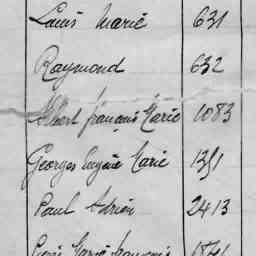 Louis Marie 631
Raymond 632
Albert françois Marie 1083
Georges Eugène Marie 1351
Paul Adrien 2413
Marie françois